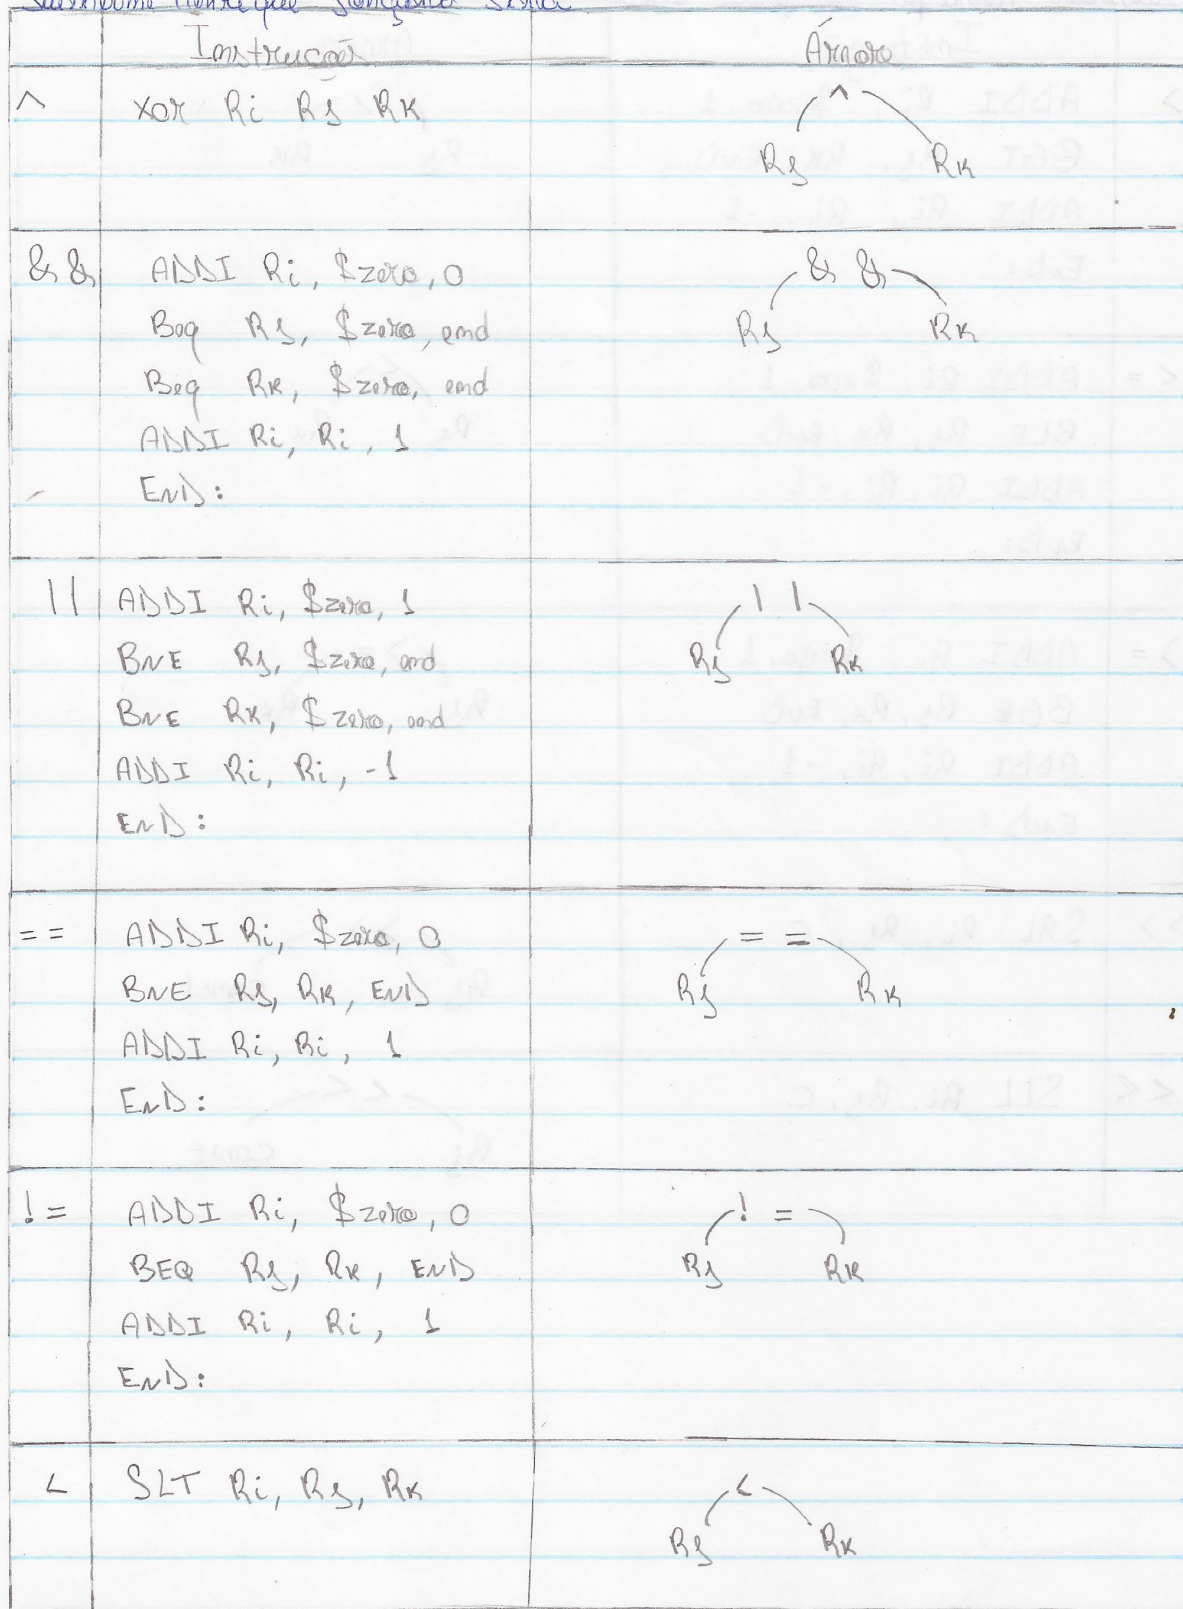 Henrique
Instrução Árvore
^ XOR Ri RJ RK ^
RJ RK
&& ADDI Ri, $zero, 0 &&
Beq RJ, $zero, end RJ RK
Beq RK, $zero, end
ADDI Ri, Ri, 1
END:
|| ADDI Ri, $zero, 1 ||
BNE RJ, $zero, end RJ RK
BNE RK, $zero, end
ADDI Ri, Ri, -1
END:
== ADDI Ri, $zero, 0 ==
BNE RJ, RK, END RJ RK
ADDI Ri, Ri, 1
END:
!= ADDI Ri, $zero, 0 !=
BEQ RJ, RK, END RJ RK
ADDI Ri, Ri, 1
END:
< SLT Ri, RJ, RK <
RJ RK